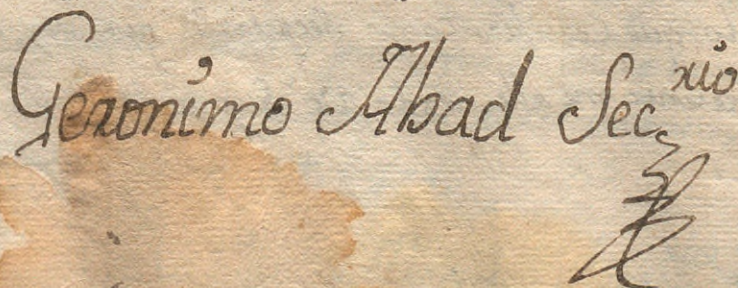 Geronimo Abad Sec.rio